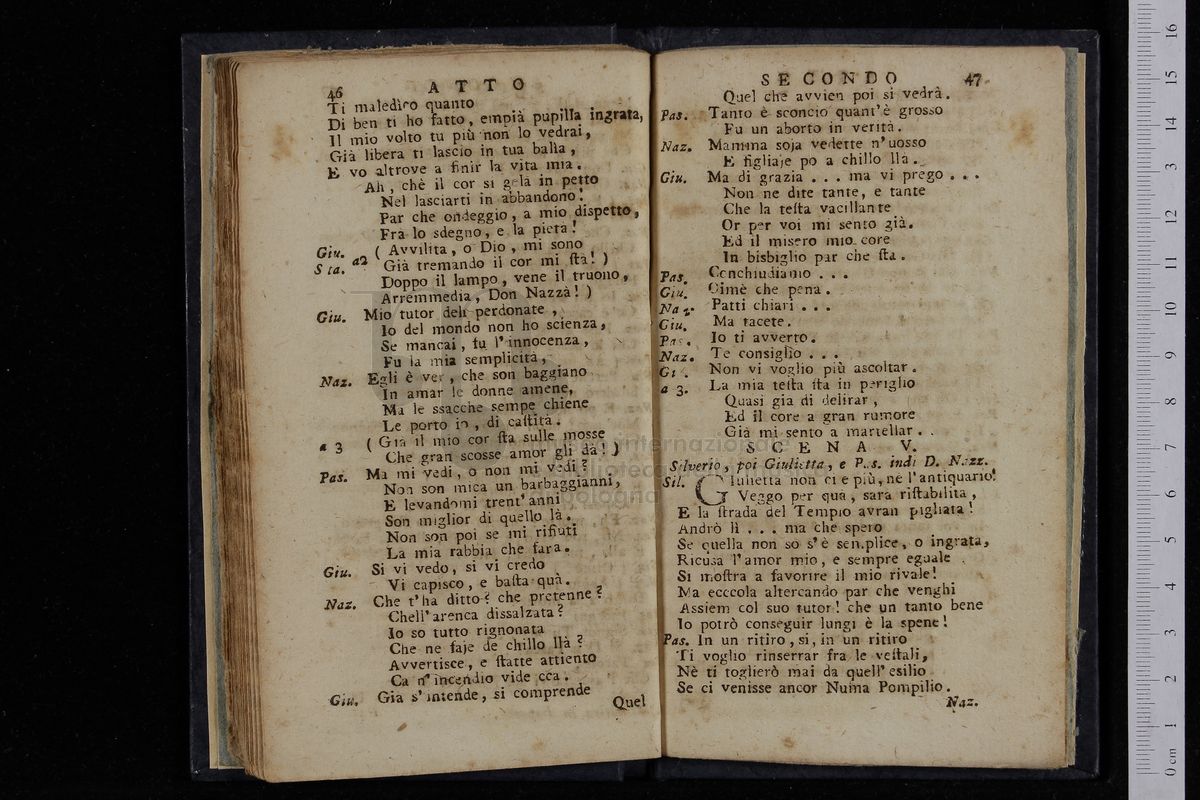 46 ATTO
Ti maledico quanto
Di ben ti ho fatto, empia pupilla ingrata,
Il mio volto tu più non lo vedrai,
Già libera ti lascio in tua balìa,
E vo altrove a finir la vita mia.
Ah, chè il cor si gela in petto
Nel lasciarti in abbandono!
Par che ondeggio, a mio dispetto,
Fra lo sdegno, e la pieta!
Giu. ( Avvilita, o Dio, mi sono
Sta. a2 Già tremando il cor mi sta! )
Doppo il lampo, vene il truono,
Arremmedia, Don Nazzà! )
Giu. Mio tutor deh perdonate,
Io del mondo non ho scienza,
Se mancai, fu l'innocenza,
Fu la mia semplicità,
Naz. Egli è ver, che son baggiano
In amar le donne amene,
Ma le ssacche sempe chiene
Le porto io, di castità.
a 3 ( Già il mio cor sta sulle mosse
Che gran scosse amor gli dà! )
Pas. Ma mi vedi, o non mi vedi?
Non son mica un barbaggianni,
E levandomi trent'anni
Son miglior di quello là.
Non son poi se mi rifiuti
La mia rabbia che fara.
Giu. Si vi vedo, si vi credo
Vi capisco, e basta quà.
Naz. Che t'ha ditto? che pretenne?
Chell'arenca dissalzata?
Io so tutto rignonata
Che ne faje de chillo llà?
Avvertisce, e statte attiento
Ca n'incendio vide cca.
Giu. Gia s'intende, si comprende
Quel
SECONDO 47
Quel che avvien poi si vedrà.
Pas. Tanto è sconcio quant'è grosso
Fu un aborto in verità.
Naz. Mamma soja vedette n'uosso
E figliaje po a chillo llà.
Giu. Ma di grazia . . . ma vi prego . . .
Non ne dite tante, e tante
Che la testa vacillante
Or per voi mi sento già.
Ed il misero mio core
In bisbiglio par che sta.
Pas. Conchiudiamo . . .
Giu. Oimè che pena.
Naz. Patti chiari . . .
Giu. Ma tacete.
Pas. Io ti avverto.
Naz. Te consiglio . . .
Gi . Non vi voglio più ascoltar.
a 3. La mia testa sta in periglio
Quasi gia di delirar,
Ed il core a gran rumore
Già mi sento a martellar. .
SCENA V.
Silverio, poi Giulietta, e Pas. indi D. Nazz.
Sil. Giulietta non ci e più, ne l'antiquario!
Veggo per quà, sarà ristabilita,
E la strada del Tempio avran pigliata!
Andrò lì . . . ma che spero
Se quella non so s'è semplice, o ingrata,
Ricusa l'amor mio, e sempre eguale
Si mostra a favorire il mio rivale!
Ma ecccola altercando par che venghi
Assiem col suo tutor! che un tanto bene
Io potrò conseguir lungi è la spene!
Pas. In un ritiro, si, in un ritiro
Ti voglio rinserrar fra le vestali,
Nè ti toglierò mai da quell'esilio
Se ci venisse ancor Numa Pompilio.
Naz.
internazionale
biblioteca
bologna
0 cm 1 2 3 4 5 6 7 8 9 10 11 12 13 14 15 16